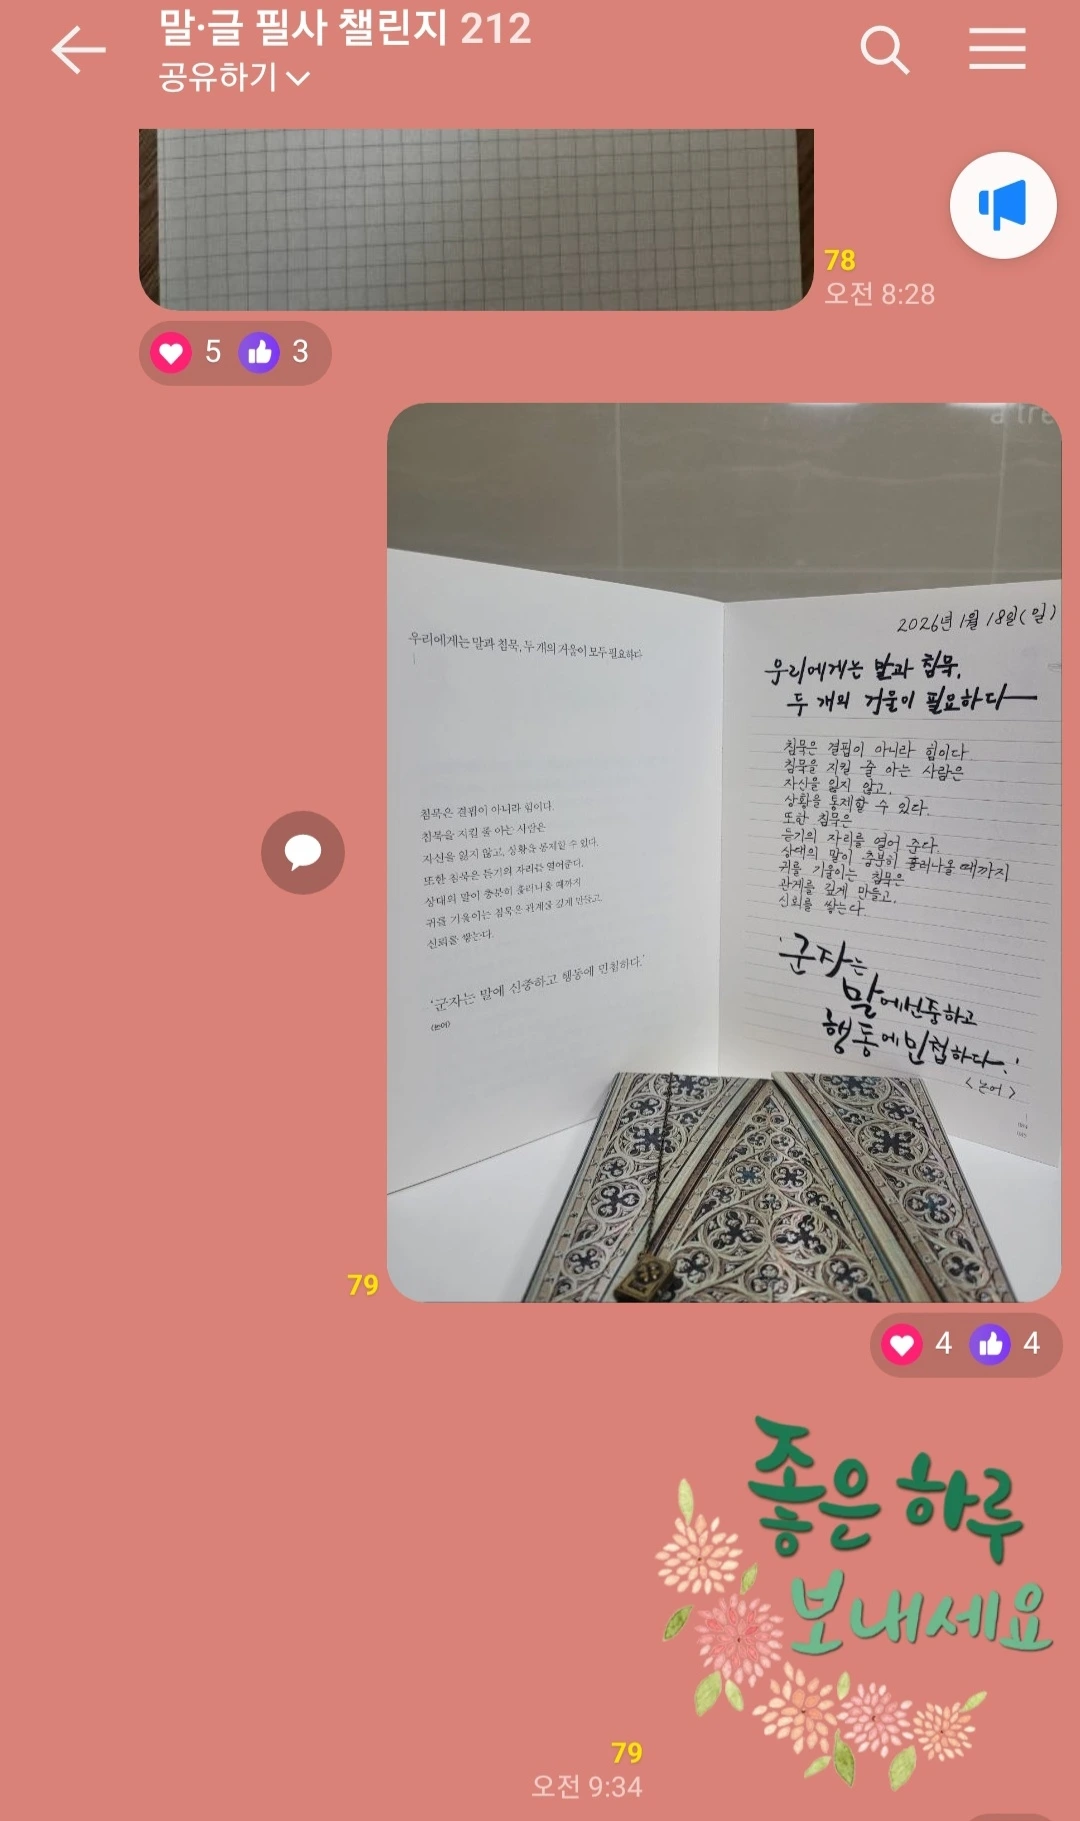 말·글 필사 챌린지 212
공유하기
78
오전 8:28
5 3
a tre
우리에게는 말과 침묵, 두 개의 거울이 모두 필요하다
침묵은 결핍이 아니라 힘이다.
침묵을 지킬 줄 아는 사람은
자신을 잃지 않고, 상황을 통제할 수 있다.
또한 침묵은 듣기의 자리를 열어준다.
상대의 말이 충분히 흘러나올 때까지
귀를 기울이는 침묵은 관계를 깊게 만들고,
신뢰를 쌓는다.
‘군자는 말에 신중하고 행동에 민첩하다.’
<논어>
2026년 1월 18일(일)
우리에게는 말과 침묵,
두 개의 거울이 필요하다
침묵은 결핍이 아니라 힘이다
침묵을 지킬 줄 아는 사람은
자신을 잃지 않고,
상황을 통제할 수 있다.
또한 침묵은
듣기의 자리를 열어 준다.
상대의 말이 충분히 흘러나올 때까지
귀를 기울이는 침묵은
관계를 깊게 만들고,
신뢰를 쌓는다.
'군자는
말에 신중하고
행동에 민첩하다.'
<논어>
79
4 4
좋은 하루
보내세요
79
오전 9:34